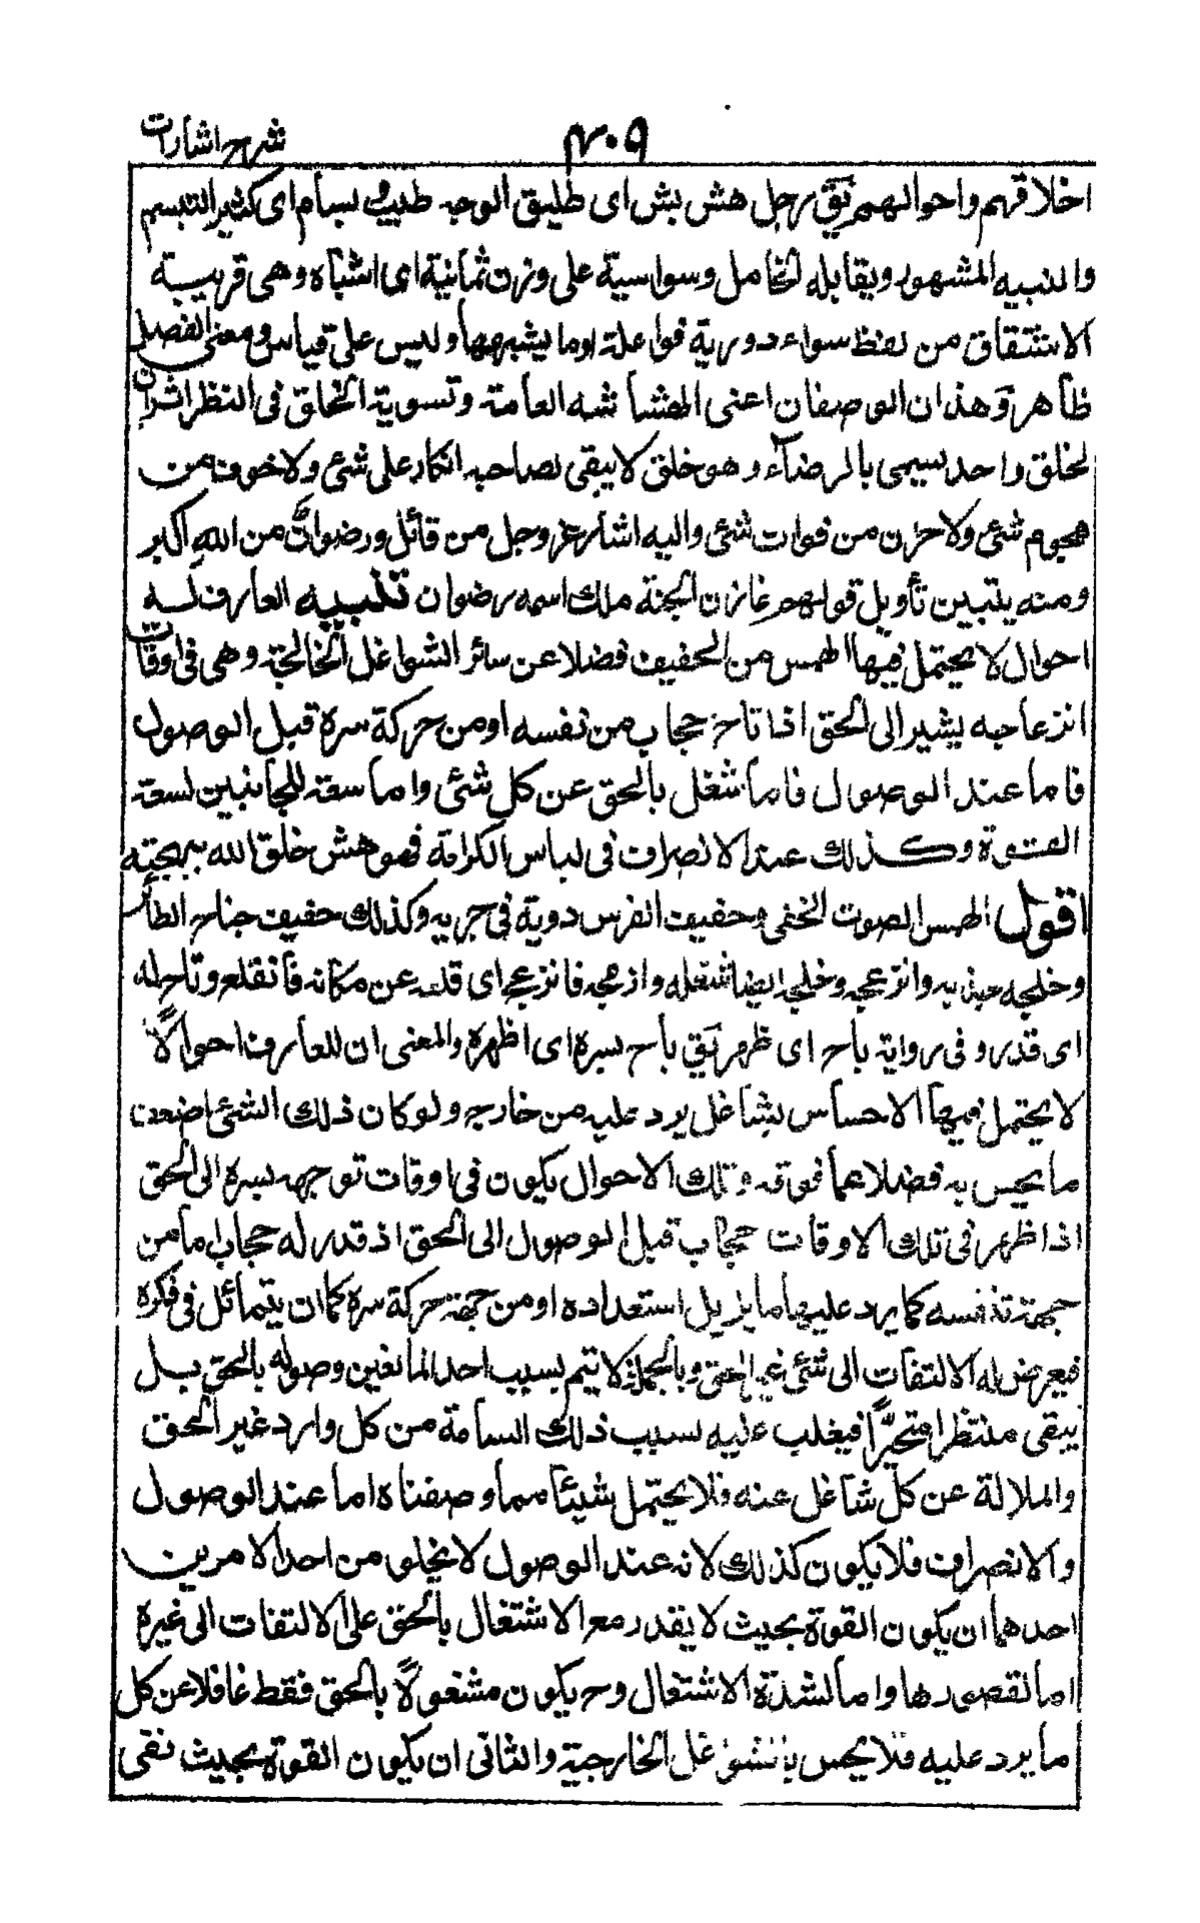 شرح اشارات
٤٠٩
اخلاقهم واحوالهم يق رجل هش بش اى طليق الوجه طيب وبسام اى كثير التبسم
والنبيه المشهور ويقابله الخامل وسواسية على وزن ثمانية اى اشباه وهى قريبة
الاشتقاق من لفظ سواء دورية فواعلة اوما يشبهها وليس على قياس ومعنى الفصل
ظاهر وهذان الوصفان اعنى الهشاشه العامة وتسوية الخلق فى النظر اثران
لخلق واحد يسمى بالرضاء وهو خلق لا يبقى لصاحبه انكار على شئ ولا خوف من
هجوم شئ ولا حزن من فوات شئ واليه اشار عز وجل من قائل ورضوان من الله اكبر
ومنه يتبين تأويل قولهم خازن الجنة ملك اسمه رضوان تنبيه العارف له
احوال لا يحتمل فيها الهمس من الحفيف فضلا عن سائر الشواغل الخالجة وهى فى اوقات
انزعاجه يشير الى الحق اذا تاح حجاب من نفسه او من حركة سره قبل الوصول
فاما عند الوصول فاما شغل بالحق عن كل شئ واما سعة للجانبين لسعة
القوة وكذلك عند الانصراف فى لباس الكرامة فهو هش خلق الله ببهجته
اقول الهمس الصوت الخفى وحفيف الفرس دوية فى جريه وكذلك حفيف جناح الطائر
وخلجه جذبه وانزعجه وخلجه ايضا شغله وازعجه فانزعج اى قلعه عن مكانه فانقلع وتاح له
اى قدر وفى رواية باح اى ظهر يق باح بسره اى اظهره والمعنى ان للعارف احوالا
لا يحتمل فيها الاحساس بشاغل يرد عليه من خارج ولو كان ذلك الشئ اضعف
ما يحس به فضلا عما فوقه وتلك الاحوال يكون فى اوقات توجهه بسره الى الحق
اذا ظهر فى تلك الاوقات حجاب قبل الوصول الى الحق اذ قدر له حجاب اما من
جهة نفسه كما يرد عليها ما يزيل استعداده او من جهة حركة سره كما ان يتمائل فى فكره
فيعرض له الالتفات الى شئ غير الحق وبالجملة لا يتم بسبب احد المانعين وصوله بالحق بل
يبقى منتظرا متحيرا فيغلب عليه بسبب ذلك السامة من كل وارد غير الحق
والملالة عن كل شاغل عنه فلا يحتمل شيئا مما وصفناه اما عند الوصول
والانصراف فلا يكون كذلك لانه عند الوصول لا يخلو من احد الامرين
احدهما ان يكون القوة بحيث لا يقدر مع الاشتغال بالحق على الالتفات الى غيره
اما لقصورها واما لشدة الاشتغال وح يكون مشغولا بالحق فقط غافلا عن كل
ما يرد عليه فلا يحس بالشواغل الخارجية والثانى ان يكون القوة بحيث تفى